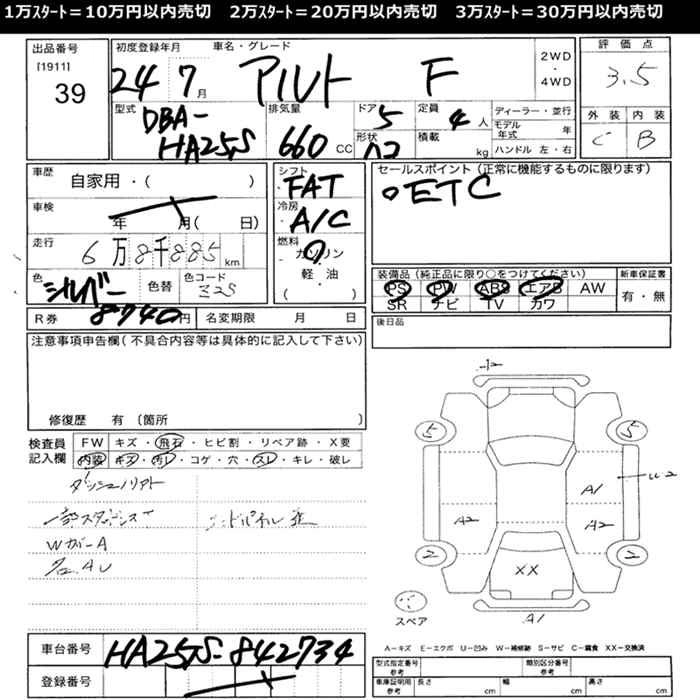 1万スタート＝10万円以内売切　2万スタート＝20万円以内売切　3万スタート＝30万円以内売切
出品番号
[1911]
39
初度登録年月
24 7月
車名・グレード
アルト F
2WD
・
4WD
評価点
3.5
外装 内装
C B
型式
DBA-
HA25S
排気量
660 CC
ドア 5
形状
定員 4 人
積載 kg
ディーラー・並行
モデル年式 年
ハンドル 左・右
車歴
自家用・( )
車検
年 月( 日)
走行
6万8千885km
色
シルバー
色替
色コード
Z2S
シフト
FAT
冷房
A/C
燃料
ガソリン
軽・油
( )
セールスポイント (正常に機能するものに限ります)
○ETC
装備品(純正品に限り○をつけてください)
新車保証書
PS PW ABS エアB AW
SR ナビ TV カワ
有・無
R券 8740円
名変期限 月 日
後日品
注意事項申告欄(不具合内容等は具体的に記入して下さい)
修復歴 有 〔箇所 〕
検査員
記入欄
FW キズ・飛石・ヒビ割・リペア跡・X要
内装 キズ・汚レ・コゲ・穴・スレ・キレ・破レ
WガーA
5 5
A1
U2
A2 A2
2 2
XX
A1
スペア
A－キズ E－エクボ U－凹み W－補修跡 S－サビ C－腐食 XX－交換済
車台番号
HA25S-842734
登録番号
型式指定番号
参考
類別区分番号
参考
車庫証明用
参考
長さ cm 幅 cm 高さ cm